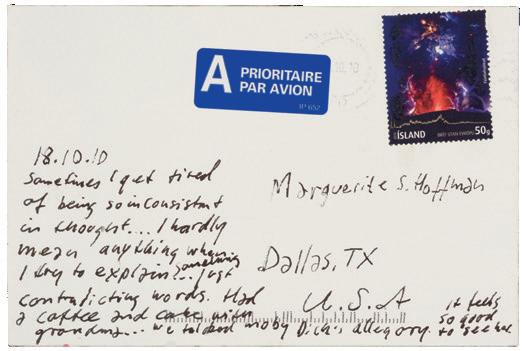 A PRIORITAIRE
PAR AVION
IP 652
10.10
ÍSLAND
50g
18.10.10
Sometimes I get tired
of being so inconsistant
in thought.... I hardly
mean anything when
I try to explain something ... just
contradicting words. Had
a coffee and cake with
grandma... we talked moby Dick's allegory. it feels
so good
to see her
Marguerite S. Hoffman
Dallas, TX
U.S.A